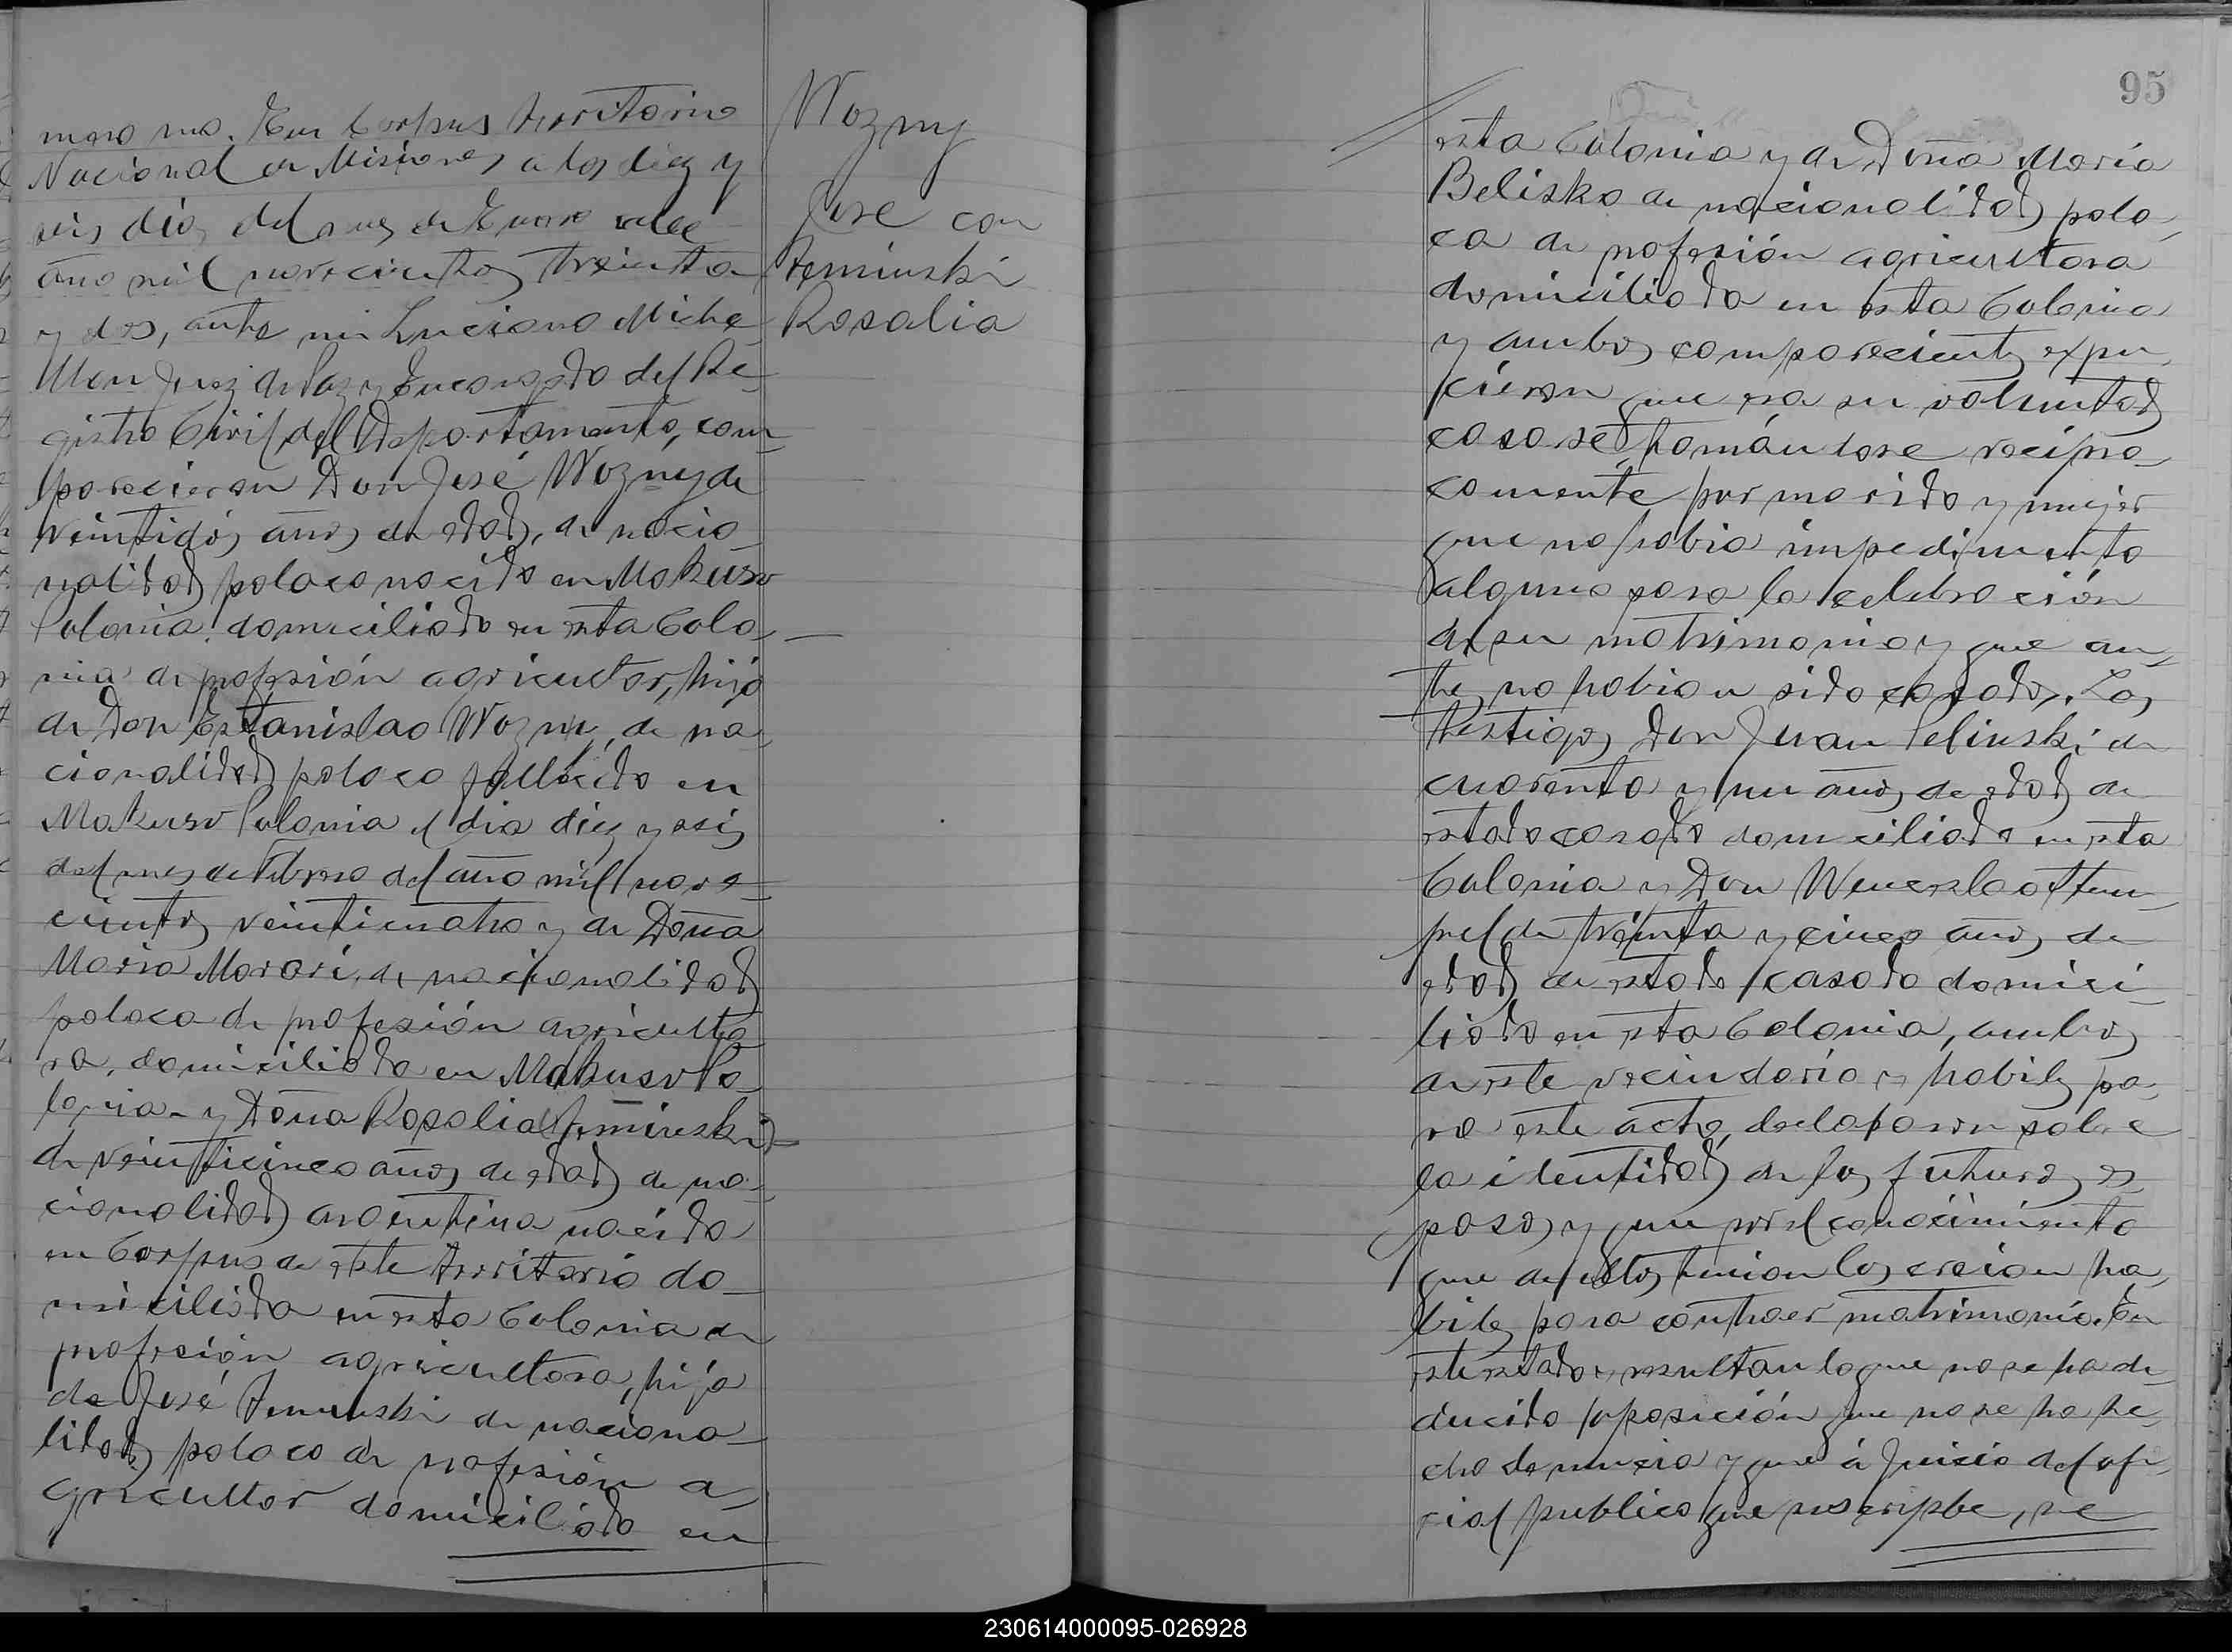 mero uno. En Corpus Territorio
Nacional de Misiones a los diez y
seis dias del mes de Enero del
año mil novecientos treinta
y dos, ante mi Luciano Miche
Juez de Paz y Encargado del Re-
gistro Civil del Departamento, com-
parecieron Don José Wozny de
veintidós años de edad, de nacio-
nalidad polaco nacido en Mokuso
Polonia, domiciliado en esta Colo-
nia de profesión agricultor, hijo
de Don Estanislao Wozny, de na-
cionalidad polaco fallecido en
Mokuso Polonia el dia diez y seis
del mes de Febrero del año mil nove-
cientos veinticuatro y de Doña
Maria Morari, de nacionalidad
polaca de profesión agriculto
ra, domiciliada en Mokuso Po-
lonia - y Doña Rosalia Feminski
de veinticinco años de edad de na-
cionalidad argentina nacida
en Corpus de este territorio do-
miciliada en esta Colonia de
profesión agricultora, hija
de José Feminski de naciona-
lidad polaco de profesión a-
gricultor domiciliado en
Wozny
José con
Feminski
Rosalia
95
esta Colonia y de Doña Maria
Belisko de nacionalidad pola-
ca de profesión agricultora
domiciliada en esta Colonia
y ambos comparecientes expu-
cieron que era su voluntad
casarse tomándose recipro-
camente por marido y mujer
que no habia impedimento
alguno para la celebración
de su matrimonio y que an-
tes no habian sido casados. Los
testigos Don Juan Pelinski de
cuarenta y un años de edad de
estado casado domiciliado en esta
Colonia y Don Wenceslao Hem-
pel de treinta y cinco años de
edad de estado casado domici-
liado en esta Colonia, ambos
de este vecindario y habiles pa-
ra este acto, declararon sobre
la identidad de los futuros es
posos y que por el conocimiento
que de ellos tenian los creian ha-
biles para contraer matrimonio. En
este estado y resultando que no se ha de-
ducido oposición que no se ha he-
cho denuncia y que á Juicio del ofi-
cial publico que suscripbe, se
230614000095-026928